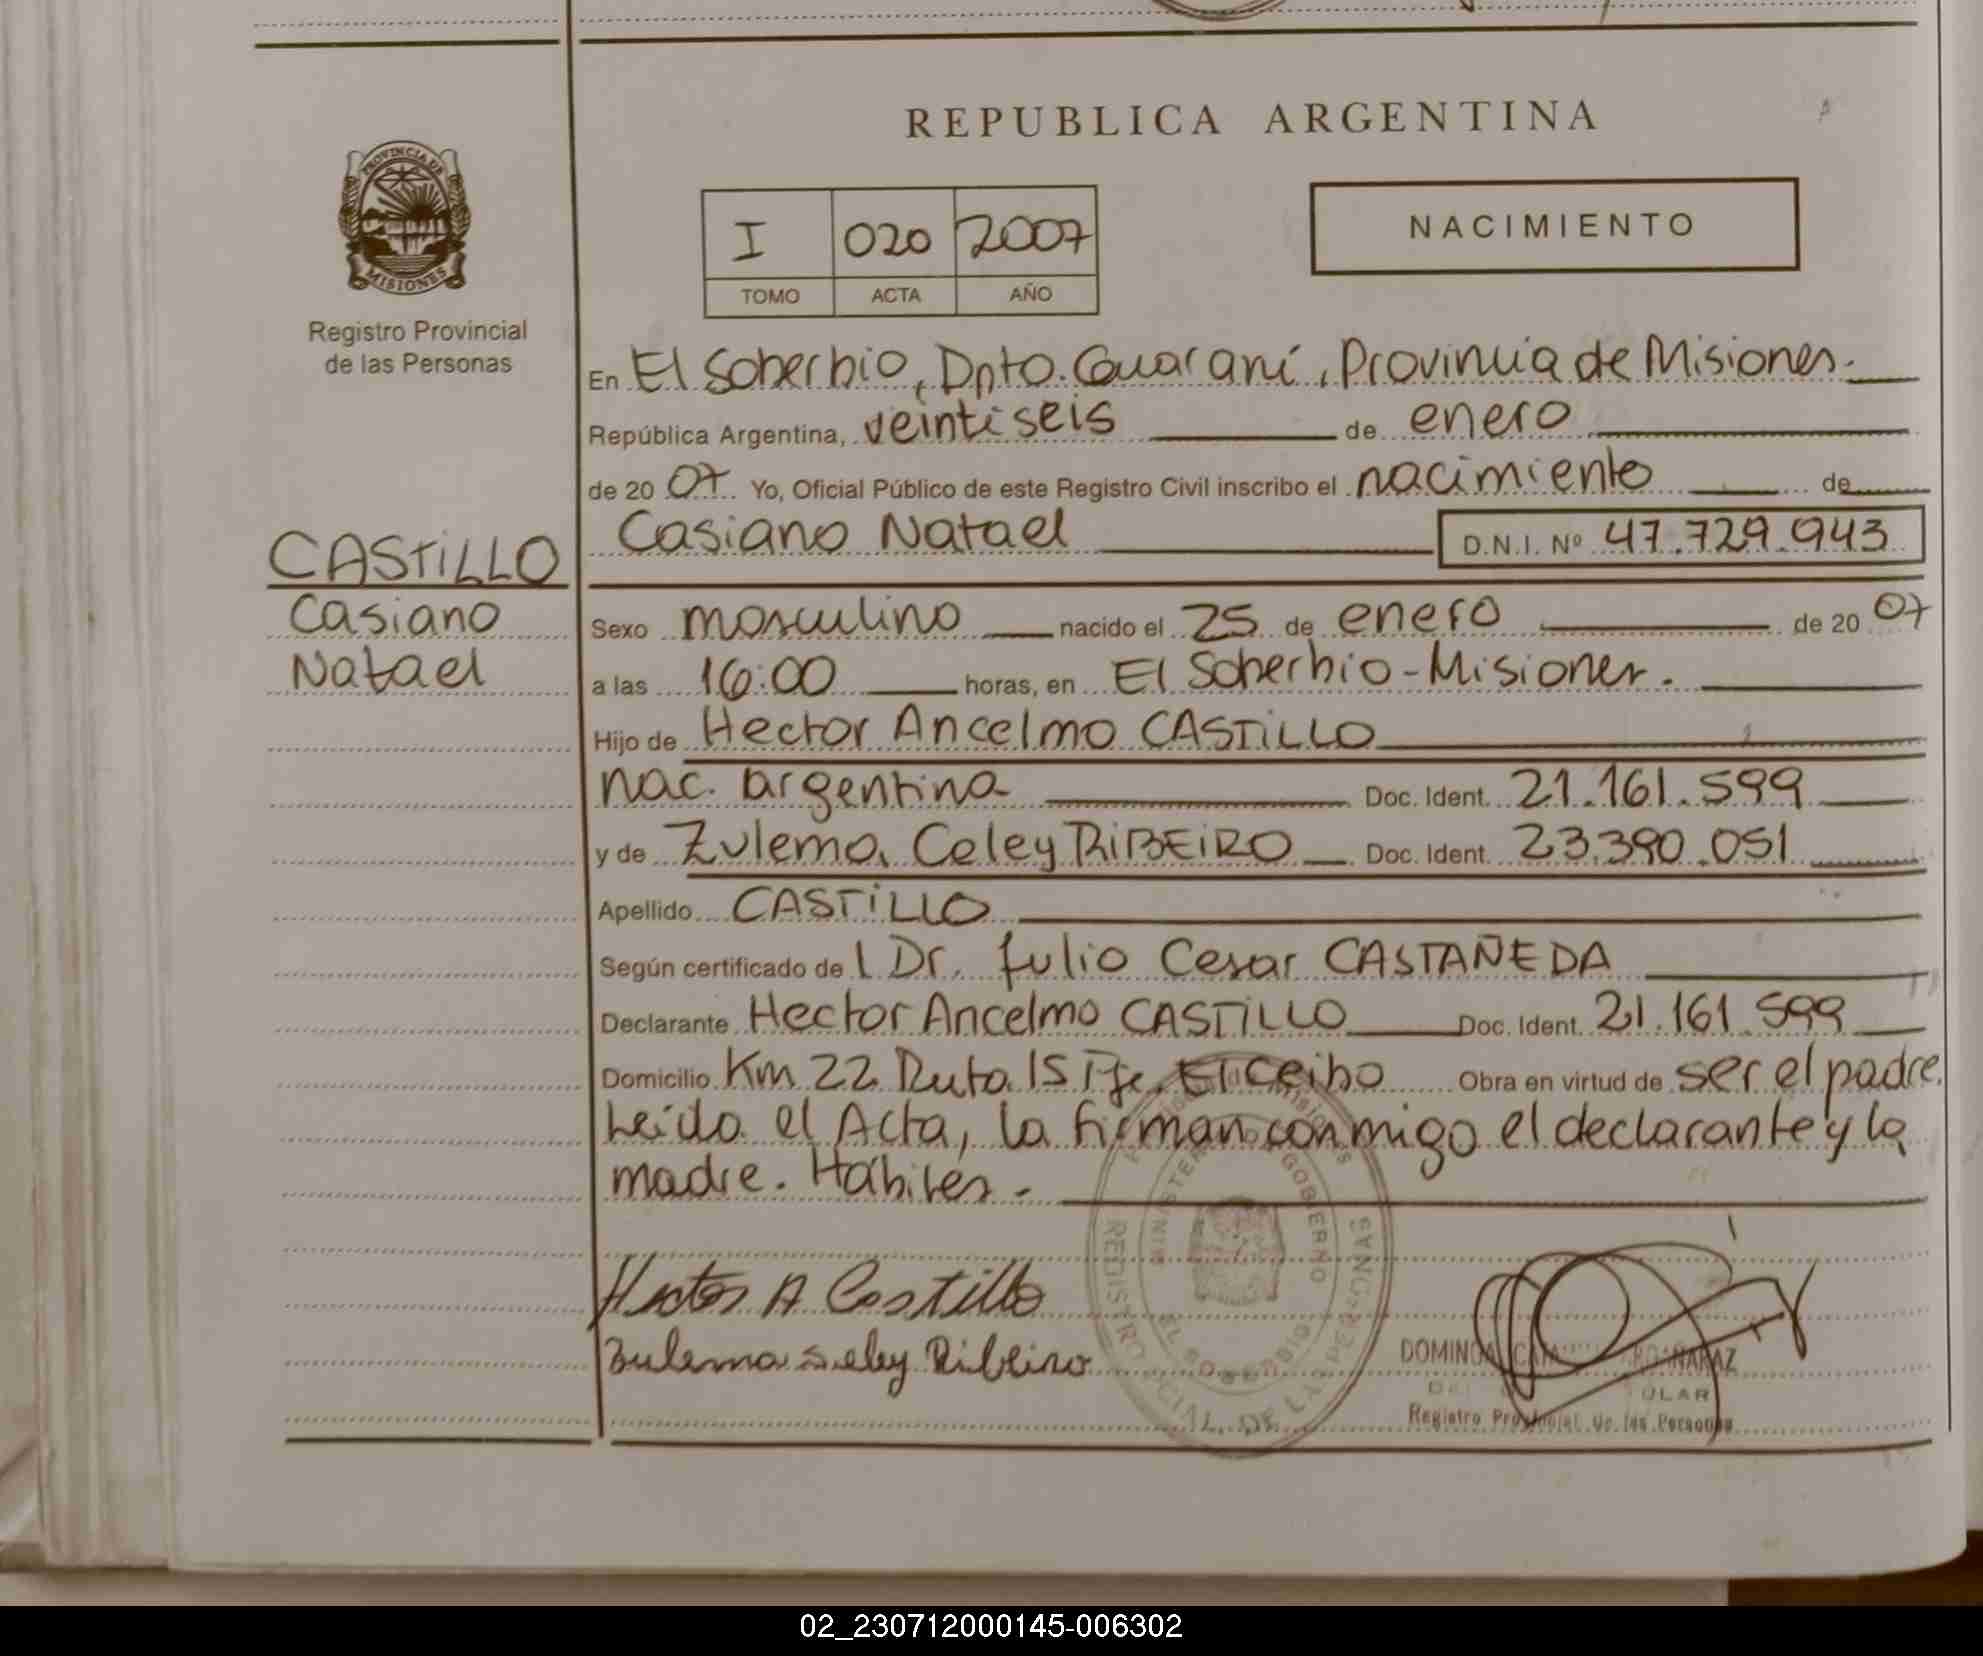 REPUBLICA ARGENTINA
PROVINCIA DE
MISIONES
Registro Provincial
de las Personas
I 020 2007
TOMO ACTA AÑO
NACIMIENTO
En El Soberbio, Dpto. Guaraní, Provincia de Misiones.
República Argentina, veintiseis de enero
de 20 07 Yo, Oficial Público de este Registro Civil inscribo el nacimiento de
Casiano Natael D.N.I. Nº 47.729.943
CASTiLLO
Casiano
Natael
Sexo masculino nacido el 25 de enero de 20 07
a las 16:00 horas, en El Soberbio - Misiones.
Hijo de Hector Ancelmo CASTiLLO
nac. argentina Doc. Ident. 21.161.599
y de Zulema Celey RiBEiRO Doc. Ident. 23.390.051
Apellido CASTiLLO
Según certificado de l Dr. Julio Cesar CASTAÑEDA
Declarante Hector Ancelmo CASTiLLO Doc. Ident. 21.161.599
Domicilio Km 22 Ruta 15 Pje. El Ceibo Obra en virtud de ser el padre.
Leida el Acta, la firman conmigo el declarante y la
madre. Hábiles.-
Hector A Castillo
Zulema Seley Ribeiro
MINISTERIO GOBIERNO
EL SOBERBIO
Registro Provincial de las Personas
02_230712000145-006302